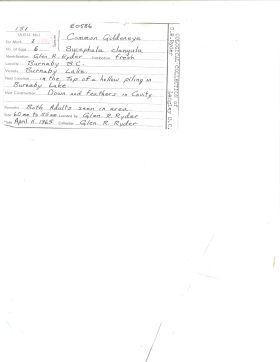 151 E0586
(A.O.U. No.)
Set Mark 2 Common Goldeneye
No. of Eggs 6 Bucephala clangula
Identification Glen R. Ryder Incubation fresh
Locality Burnaby B.C.
Vicinity Burnaby Lake.
Nest Location in the top of a hollow piling in
Burnaby Lake
Nest Construction Down and feathers in Cavity
Remarks Both Adults seen in area
Size 60 mm to 55 mm Located by Glen R. Ryder
Date April 11, 1965 Collector Glen R. Ryder
OOLOGICAL COLLECTION OF
G.R. Ryder Langley B.C.